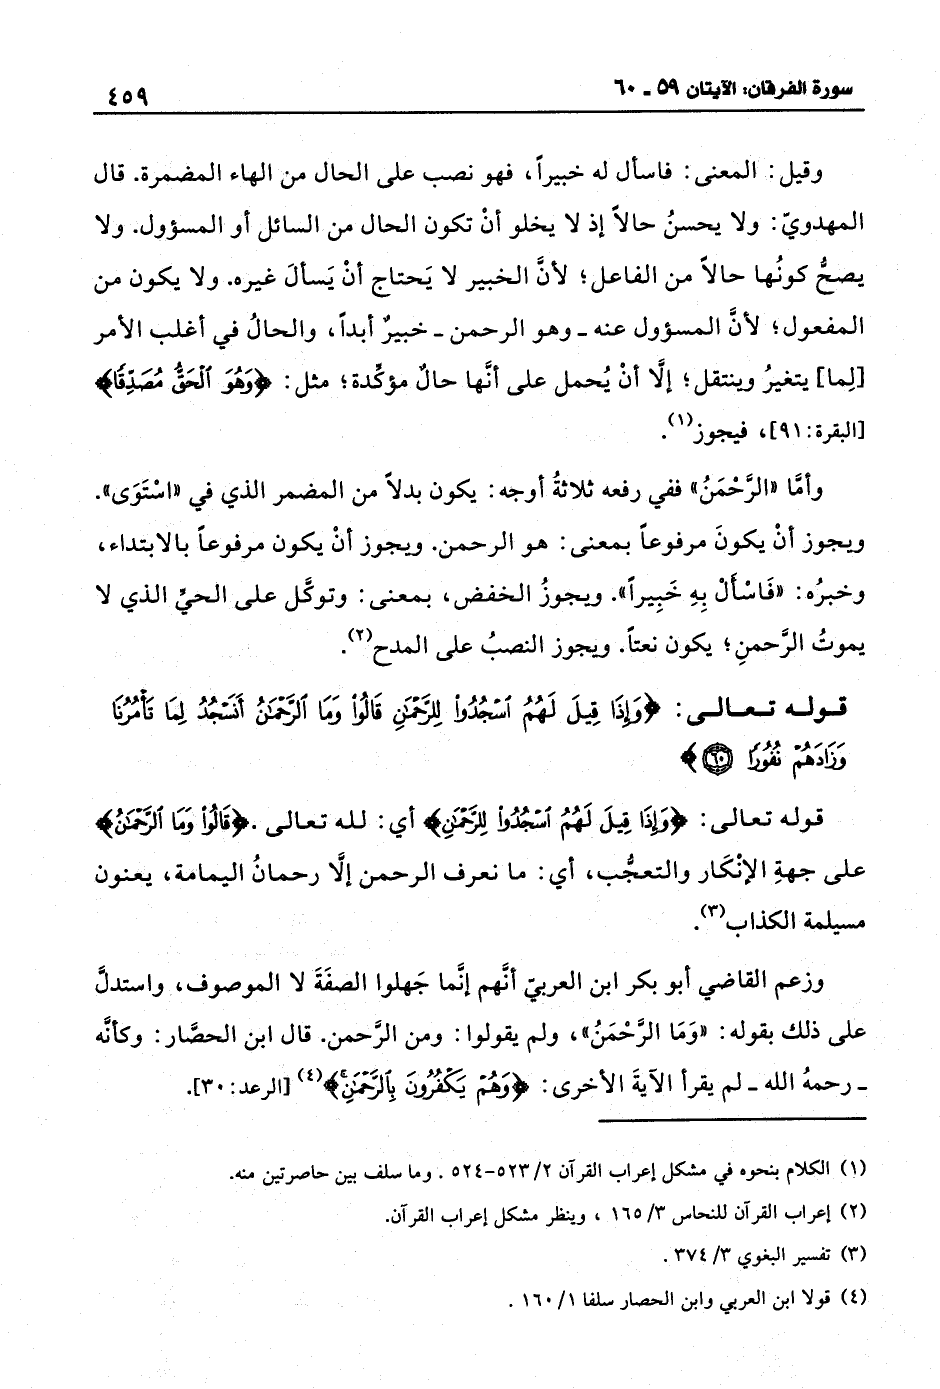 سورة الفرقان: الآيتان ٥٩ ـ ٦٠
٤٥٩
وقيل: المعنى: فاسأل له خبيراً، فهو نصب على الحال من الهاء المضمرة. قال
المهدويّ: ولا يحسنُ حالاً إذ لا يخلو أنْ تكون الحال من السائل أو المسؤول. ولا
يصحُّ كونُها حالاً من الفاعل؛ لأنَّ الخبير لا يَحتاج أنْ يَسألَ غيره. ولا يكون من
المفعول؛ لأنَّ المسؤول عنه ـ وهو الرحمن ـ خبيرٌ أبداً، والحالُ في أغلب الأمر
[لِما] يتغيرُ وينتقل؛ إلَّا أنْ يُحمل على أنَّها حالٌ مؤكِّدة؛ مثل: ﴿وَهُوَ ٱلْحَقُّ مُصَدِّقًا﴾
[البقرة:٩١]، فيجوز(١).
وأمَّا «الرَّحْمَنُ» ففي رفعه ثلاثةُ أوجه: يكون بدلاً من المضمر الذي في «اسْتَوَى».
ويجوز أنْ يكونَ مرفوعاً بمعنى: هو الرحمن. ويجوز أنْ يكون مرفوعاً بالابتداء،
وخبرُه: «فَاسْأَلْ بِهِ خَبِيراً». ويجوزُ الخفض، بمعنى: وتوكَّل على الحيِّ الذي لا
يموتُ الرَّحمنِ؛ يكون نعتاً. ويجوز النصبُ على المدح(٢).
قوله تعالى: ﴿وَإِذَا قِيلَ لَهُمُ ٱسْجُدُواْ لِلرَّحْمَٰنِ قَالُواْ وَمَا ٱلرَّحْمَٰنُ أَنَسْجُدُ لِمَا تَأْمُرُنَا
وَزَادَهُمْ نُفُورًا ۝٦٠﴾
قوله تعالى: ﴿وَإِذَا قِيلَ لَهُمُ ٱسْجُدُواْ لِلرَّحْمَٰنِ﴾ أي: لله تعالى. ﴿قَالُواْ وَمَا ٱلرَّحْمَٰنُ﴾
على جهةِ الإنْكَار والتعجُّب، أي: ما نعرف الرحمن إلَّا رحمانُ اليمامة، يعنون
مسيلمة الكذاب(٣).
وزعم القاضي أبو بكر ابن العربيّ أنَّهم إنَّما جَهلوا الصفَةَ لا الموصوف، واستدلَّ
على ذلك بقوله: «وَمَا الرَّحْمَنُ»، ولم يقولوا: ومن الرَّحمن. قال ابن الحصَّار: وكأنَّه
ـ رحمهُ الله ـ لم يقرأ الآيةَ الأخرى: ﴿وَهُمْ يَكْفُرُونَ بِٱلرَّحْمَٰنِ﴾(٤) [الرعد:٣٠].
(١) الكلام بنحوه في مشكل إعراب القرآن ٢/ ٥٢٣-٥٢٤ . وما سلف بين حاصرتين منه.
(٢) إعراب القرآن للنحاس ٣/ ١٦٥ ، وينظر مشكل إعراب القرآن.
(٣) تفسير البغوي ٣/ ٣٧٤ .
(٤) قولا ابن العربي وابن الحصار سلفا ١/ ١٦٠ .